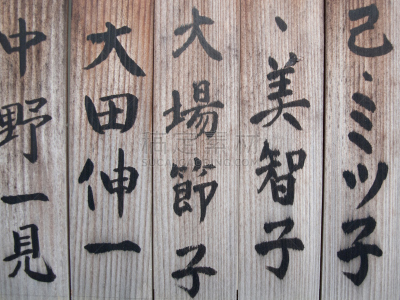 己・ミツ子
・美智子
大場節子
大田伸一
中野一見